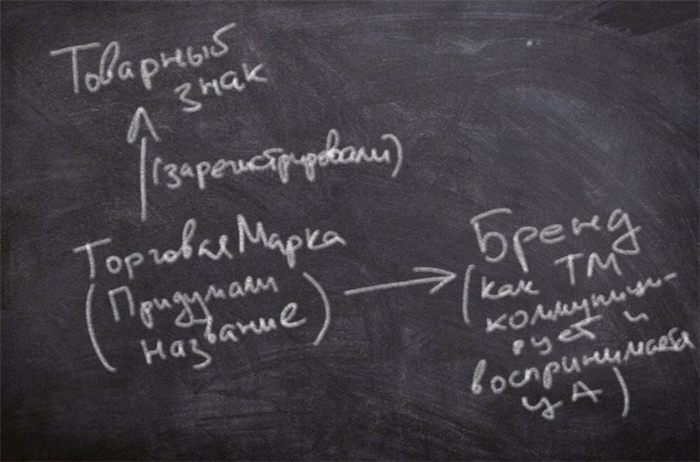 Товарный
знак
(зарегистрировали)
Торговая Марка
(Придумали
название)
Бренд
(как ТМ
коммуници-
рует и
воспринимается
ЦА)